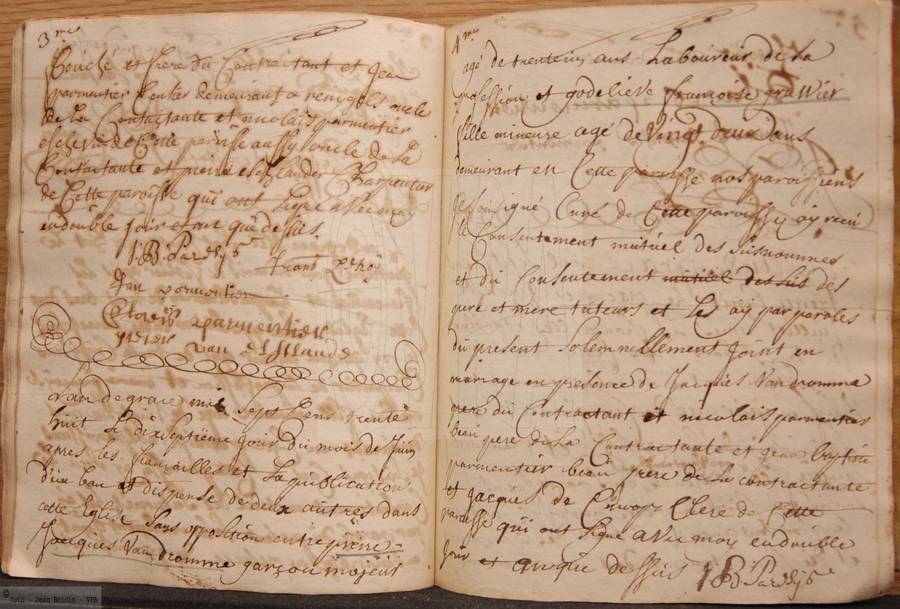 3me
Bouché et frere du Contractant et Jean
parmentier Censier demeurant a renyngels oncle
de La Contractante et nicolais parmentier
eschevin de Cette paroisse aussy oncle de la
Contractante et pierre elschlander Charpentier
de Cette paroisse qui ont signé avec moy
endouble jour et an que dessus.
Jan parmentier
parmentier
pieter
van
L'an de grace mil Sept Cens trente
huit Le dixseptieme jour du mois de Juin
apres les fiancailles et La publication
d'un ban et dispense de deux autres dans
cette Eglise Sans opposition entre pierre
Jacques Vandromme garçon majeur
4me
agé de trente un ans Laboureur de La
profession et godelieve françoise grawier
fille mineure agé de vingt deux ans
demeurant en Cette paroisse nos paroissiens
Je Soussigné Curé de Cette paroisse ay receu
Le Consentement mutuel des susnommes
et du Consentement mutuel des sus des
pere et mere tuteurs et Les ay par paroles
du present Solemnellement Joint en
mariage en presence de Jacques Vandromme
pere du Contractant et nicolais parmentier
beau pere de La Contractante et jean baptiste
parmentier beau frere de La Contractante
et Jacques de Clerc de Cette
paroisse qui ont Signé avec moy endouble
Jour et an que dessus
Photo - Jean Boidin - VPA